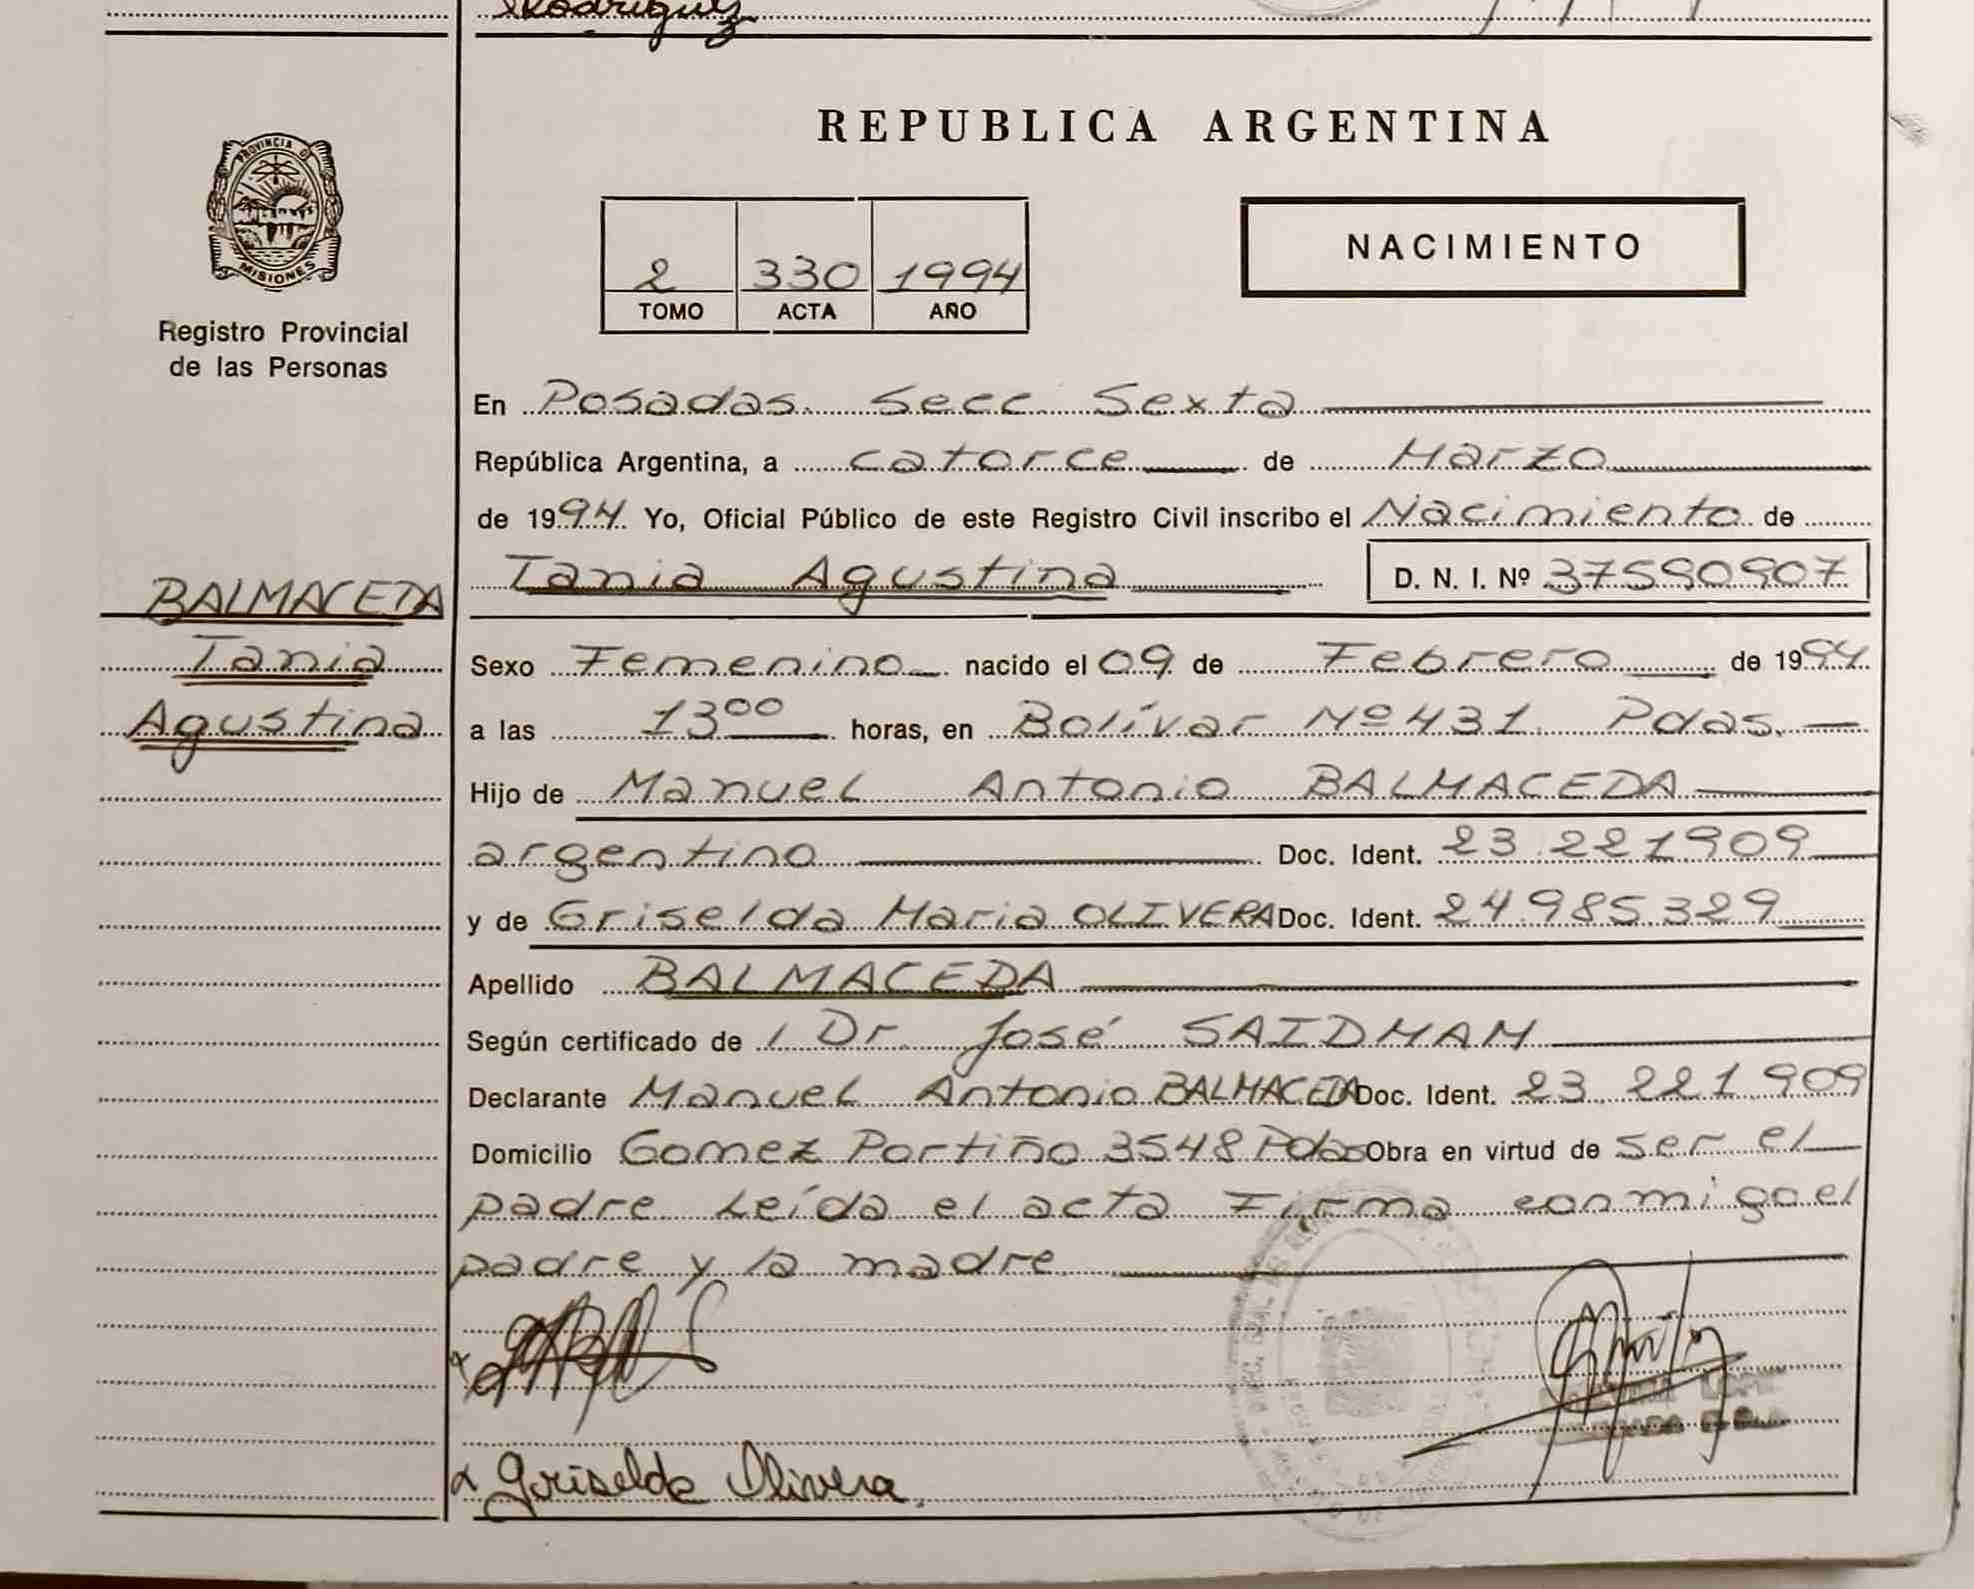 Rodriguez
REPUBLICA ARGENTINA
PROVINCIA D
MISIONES
Registro Provincial
de las Personas
2 330 1994
TOMO ACTA AÑO
NACIMIENTO
En Posadas. Secc. Sexta
República Argentina, a catorce de Marzo
de 1994. Yo, Oficial Público de este Registro Civil inscribo el Nacimiento de
Tania Agustina D. N. I. Nº 37590907
BALMACEDA
Tania
Agustina
Sexo Femenino nacido el 09 de Febrero de 1994
a las 13⁰⁰ horas, en Bolívar Nº 431. Pdas.
Hijo de Manuel Antonio BALMACEDA
argentino Doc. Ident. 23.221.909
y de Griselda Maria OLIVERA Doc. Ident. 24.985.329
Apellido BALMACEDA
Según certificado de Dr. José SAIDMAM
Declarante Manuel Antonio BALMACEDA Doc. Ident. 23.221.909
Domicilio Gomez Portiño 3548 Pdas Obra en virtud de ser el
padre Leída el acta Firma conmigo el
padre y la madre
Griselda Olivera